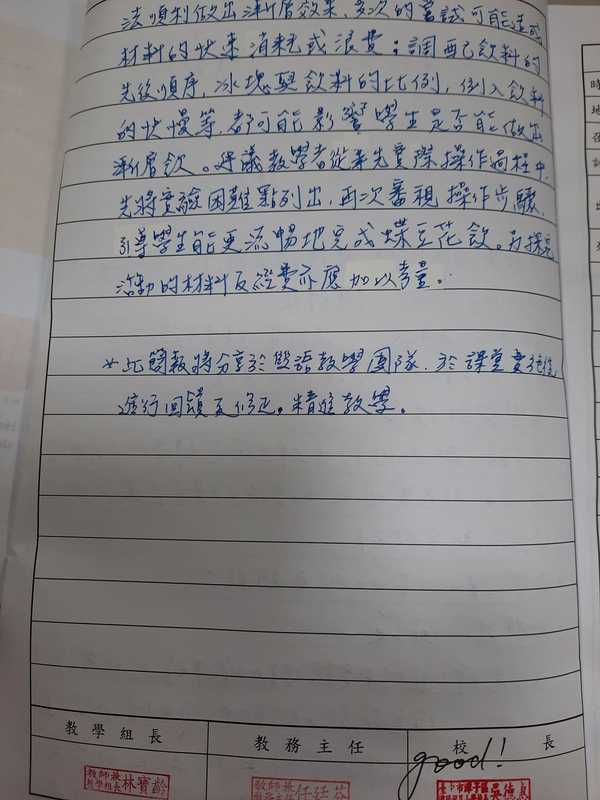 法順利做出漸層效果,多次的嘗試可能造成
材料的快速消耗或浪費;調配飲料的
先後順序,冰塊與飲料的比例,倒入飲料
的快慢等,都可能影響學生是否能做出
漸層飲。建議教學者從事先實際操作過程中,
先將實驗困難點列出,再次審視操作步驟,
引導學生能更流暢地完成蝶豆花飲。另探究
活動的材料及經費亦應加以考量。
※此簡報將分享於雙語教學團隊,於課堂實施後,
進行回饋及修正。精進教學。
教學組長
教務主任
校長
good!
教師兼
教學組長 林寶齡
教師兼